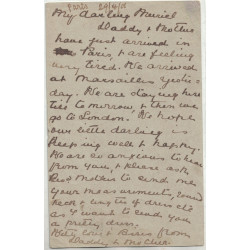 Paris
My darling Muriel
Daddy & Mother
have just arrived in
Paris, & are feeling
very tired. We arrived
at Marsailles yester-
day. We are staying here
till to-morrow, & then we
go to London. We hope
our little darling is
keeping well & happy.
We are so anxious to hear
from you, & please ask
Mother to send me
your measurements, round
neck & length of dress etc
as I want to send you
a pretty dress.
love & kisses from
Daddy & Mother